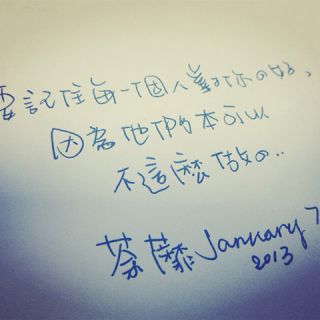 要記住每一個人對你の好,
因為他們本可以
不這麼做の..
荼蘼 January 7
2013